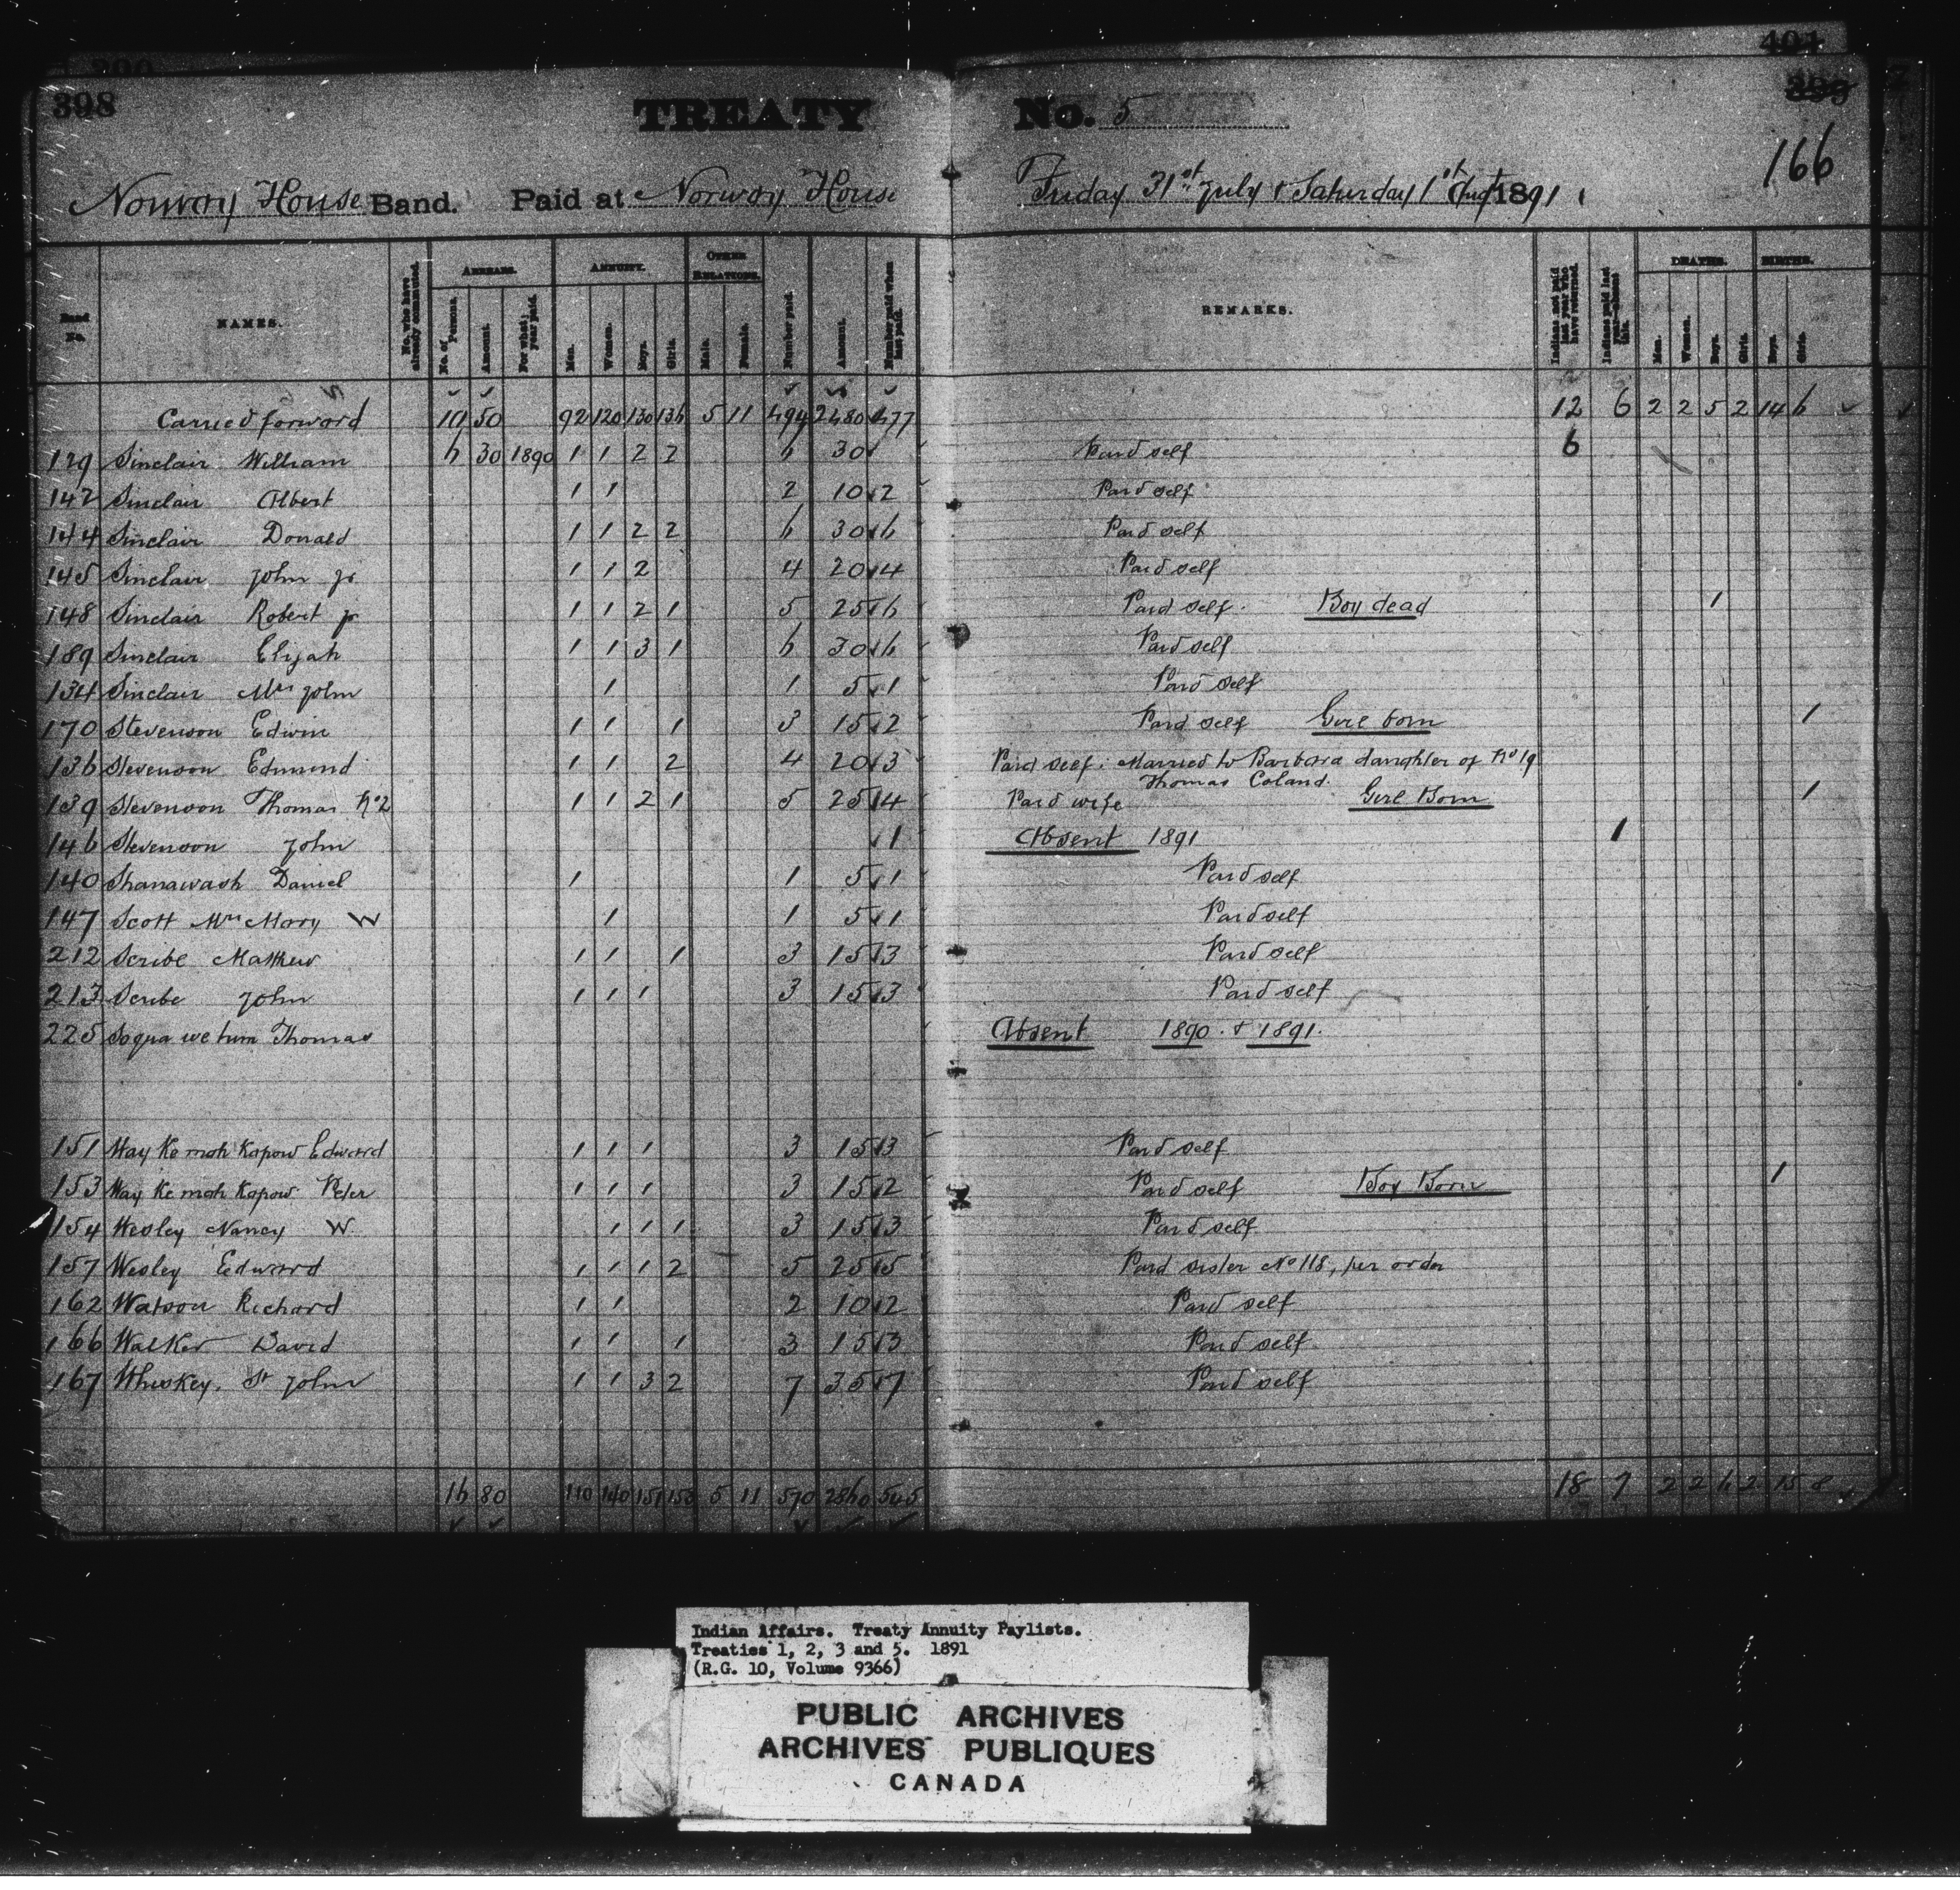 398
401
399
TREATY No. 5
166
Norway House Band. Paid at Norway House Friday 31st July & Saturday 1st Augt 1891
Band No. NAMES. No. who have already commuted. ARREARS. No. of Person. Amount. For what year paid. ANNUITY. Men. Women. Boys. Girls. OTHER RELATIONS. Male. Female. Number paid. Amount. Number paid when last paid. REMARKS. Indians not paid last year who have returned. Indians paid last year—absent this. DEATHS. Men. Women. Boys. Girls. BIRTHS. Boys. Girls.
Carried forward 10 50 92 120 130 136 5 11 494 2480 477 12 6 2 2 5 2 14 6
129 Sinclair William 6 30 1890 1 1 2 2 6 30 Paid self 6
142 Sinclair Albert 1 1 2 10 2 Paid self
144 Sinclair Donald 1 1 2 2 6 30 6 Paid self
145 Sinclair John Jr 1 1 2 4 20 4 Paid self
148 Sinclair Robert Jr 1 1 2 1 5 25 6 Paid self. Boy dead 1
189 Sinclair Elijah 1 1 3 1 6 30 6 Paid self
134 Sinclair Mrs John 1 1 5 1 Paid self
170 Stevenson Edwin 1 1 1 3 15 2 Paid self Girl born 1
136 Stevenson Edmund 1 1 2 4 20 3 Paid self. Married to Barbara daughter of No 19
Thomas Coland.
139 Stevenson Thomas No 2 1 1 2 1 5 25 4 Paid wife Girl Born 1
146 Stevenson John 1 Absent 1891 1
140 Shanawash Daniel 1 1 5 1 Paid self
147 Scott Mrs Mary W 1 1 5 1 Paid self
212 Scribe Matthew 1 1 1 3 15 3 Paid self
213 Scribe John 1 1 1 3 15 3 Paid self
225 Soqua we tum Thomas Absent 1890 & 1891.
151 Way Ke mah Kapow Edward 1 1 1 3 15 3 Paid self
153 Way Ke mah Kapow Peter 1 1 1 3 15 2 Paid self Boy Born 1
154 Wesley Nancy W. 1 1 1 3 15 3 Paid self
157 Wesley Edward 1 1 1 2 5 25 5 Paid sister No 118, per order
162 Watson Richard 1 1 2 10 2 Paid self
166 Walker David 1 1 1 3 15 3 Paid self
167 Whiskey. St John 1 1 3 2 7 35 7 Paid self
16 80 110 140 151 153 5 11 570 2860 545 18 7 2 2 6 2 15 8
Indian Affairs. Treaty Annuity Paylists.
Treaties 1, 2, 3 and 5. 1891
(R.G. 10, Volume 9366)
PUBLIC ARCHIVES
ARCHIVES PUBLIQUES
CANADA